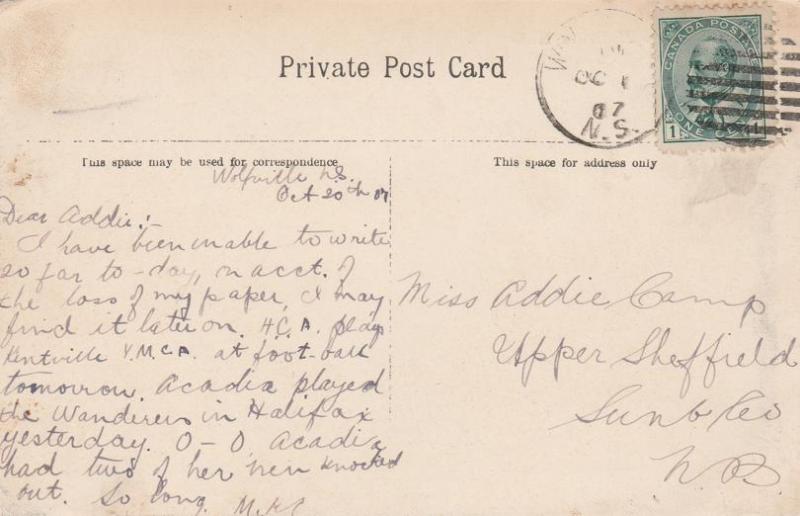 Private Post Card
CANADA POSTAGE
1
ONE
OC
07
N.S.
This space may be used for correspondence
This space for address only
Wolfville N.S.
Oct 20th 07
Dear Addie:-
I have been unable to write
so far to-day, on acct. of
the loss of my paper, I may
find it later on. H.C.A. play
Kentville Y.M.C.A. at foot-ball
tomorrow. Acadia played
the Wanderers in Halifax
yesterday. O-O. Acadia
had two of her men knocked
out. So long.
Miss Addie Camp
Upper Sheffield
Sunb Co
N.B.